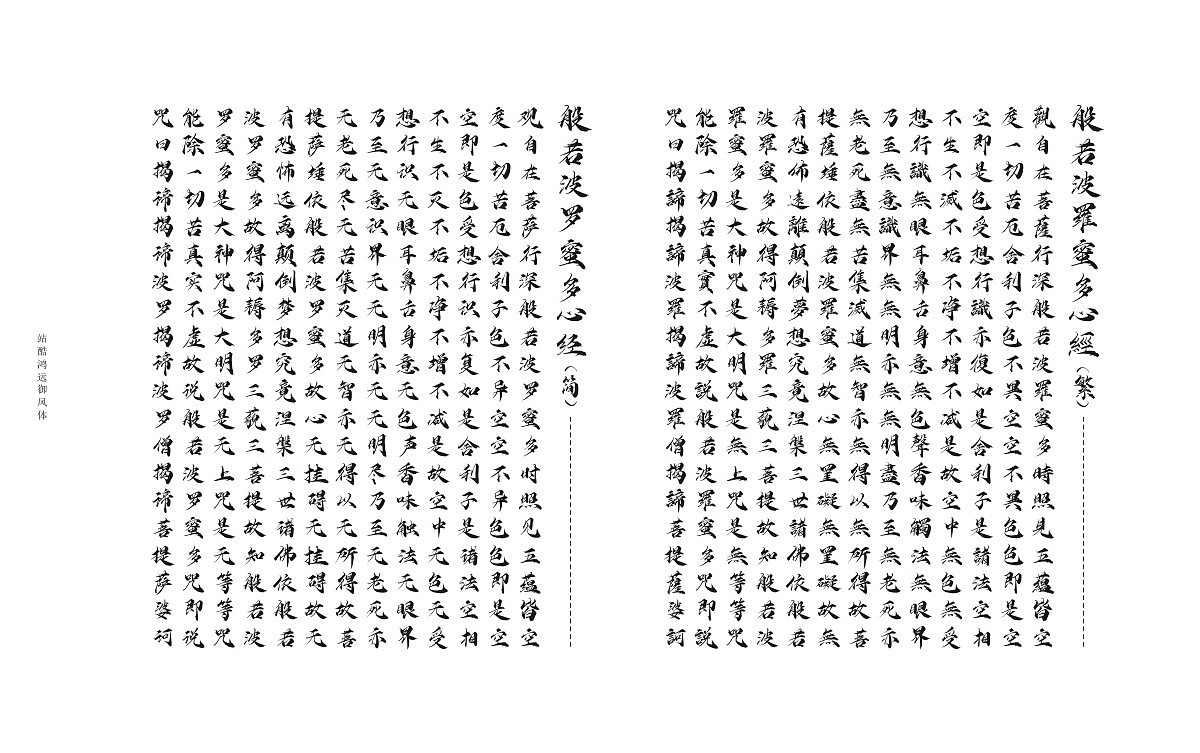 般若波羅蜜多心經（繁）
觀自在菩薩行深般若波羅蜜多時照見五蘊皆空
度一切苦厄舍利子色不異空空不異色色即是空
空即是色受想行識亦復如是舍利子是諸法空相
不生不滅不垢不淨不增不減是故空中無色無受
想行識無眼耳鼻舌身意無色聲香味觸法無眼界
乃至無意識界無無明亦無無明盡乃至無老死亦
無老死盡無苦集滅道無智亦無得以無所得故菩
提薩埵依般若波羅蜜多故心無罣礙無罣礙故無
有恐佈遠離顛倒夢想究竟涅槃三世諸佛依般若
波羅蜜多故得阿耨多羅三藐三菩提故知般若波
羅蜜多是大神咒是大明咒是無上咒是無等等咒
能除一切苦真實不虛故說般若波羅蜜多咒即說
咒曰揭諦揭諦波羅揭諦波羅僧揭諦菩提薩婆訶
般若波罗蜜多心经（简）
观自在菩萨行深般若波罗蜜多时照见五蕴皆空
度一切苦厄舍利子色不异空空不异色色即是空
空即是色受想行识亦复如是舍利子是诸法空相
不生不灭不垢不净不增不减是故空中无色无受
想行识无眼耳鼻舌身意无色声香味触法无眼界
乃至无意识界无无明亦无无明尽乃至无老死亦
无老死尽无苦集灭道无智亦无得以无所得故菩
提萨埵依般若波罗蜜多故心无挂碍无挂碍故无
有恐怖远离颠倒梦想究竟涅槃三世诸佛依般若
波罗蜜多故得阿耨多罗三藐三菩提故知般若波
罗蜜多是大神咒是大明咒是无上咒是无等等咒
能除一切苦真实不虚故说般若波罗蜜多咒即说
咒曰揭谛揭谛波罗揭谛波罗僧揭谛菩提萨婆诃
站酷鸿远御风体